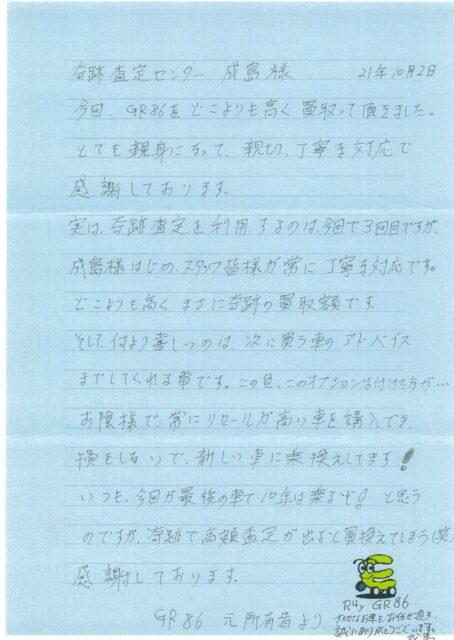 奇跡査定センター 成島様 21年10月2日
今回、GR86を どこよりも高く 買取って頂きました。
とても親身になって、親切、丁寧な対応で
感謝しております。
実は、奇跡査定を利用するのは、今回で3回目ですが、
成島様はじめ、スタッフ皆様が常に丁寧な対応です。
どこよりも高く まさに奇跡の買取額です
そして、何より喜しいのは、次に買う車のアドバイス
までしてくれる事です。この色、このオプションは付けた方が…
お陰様で、常にリセールが高い車を購入でき、
損をしないで、新しい車に乗換えしてます!
いつも、今回が最後の車で10年は乗るぞ! と思う
のですが、奇跡で高額査定が出ると買換えてしまう(笑)
感謝しております。
GR86 元所有者より、
R4y GR86
大切なお車をお任せ頂き
誠にありがとうございます。
成島